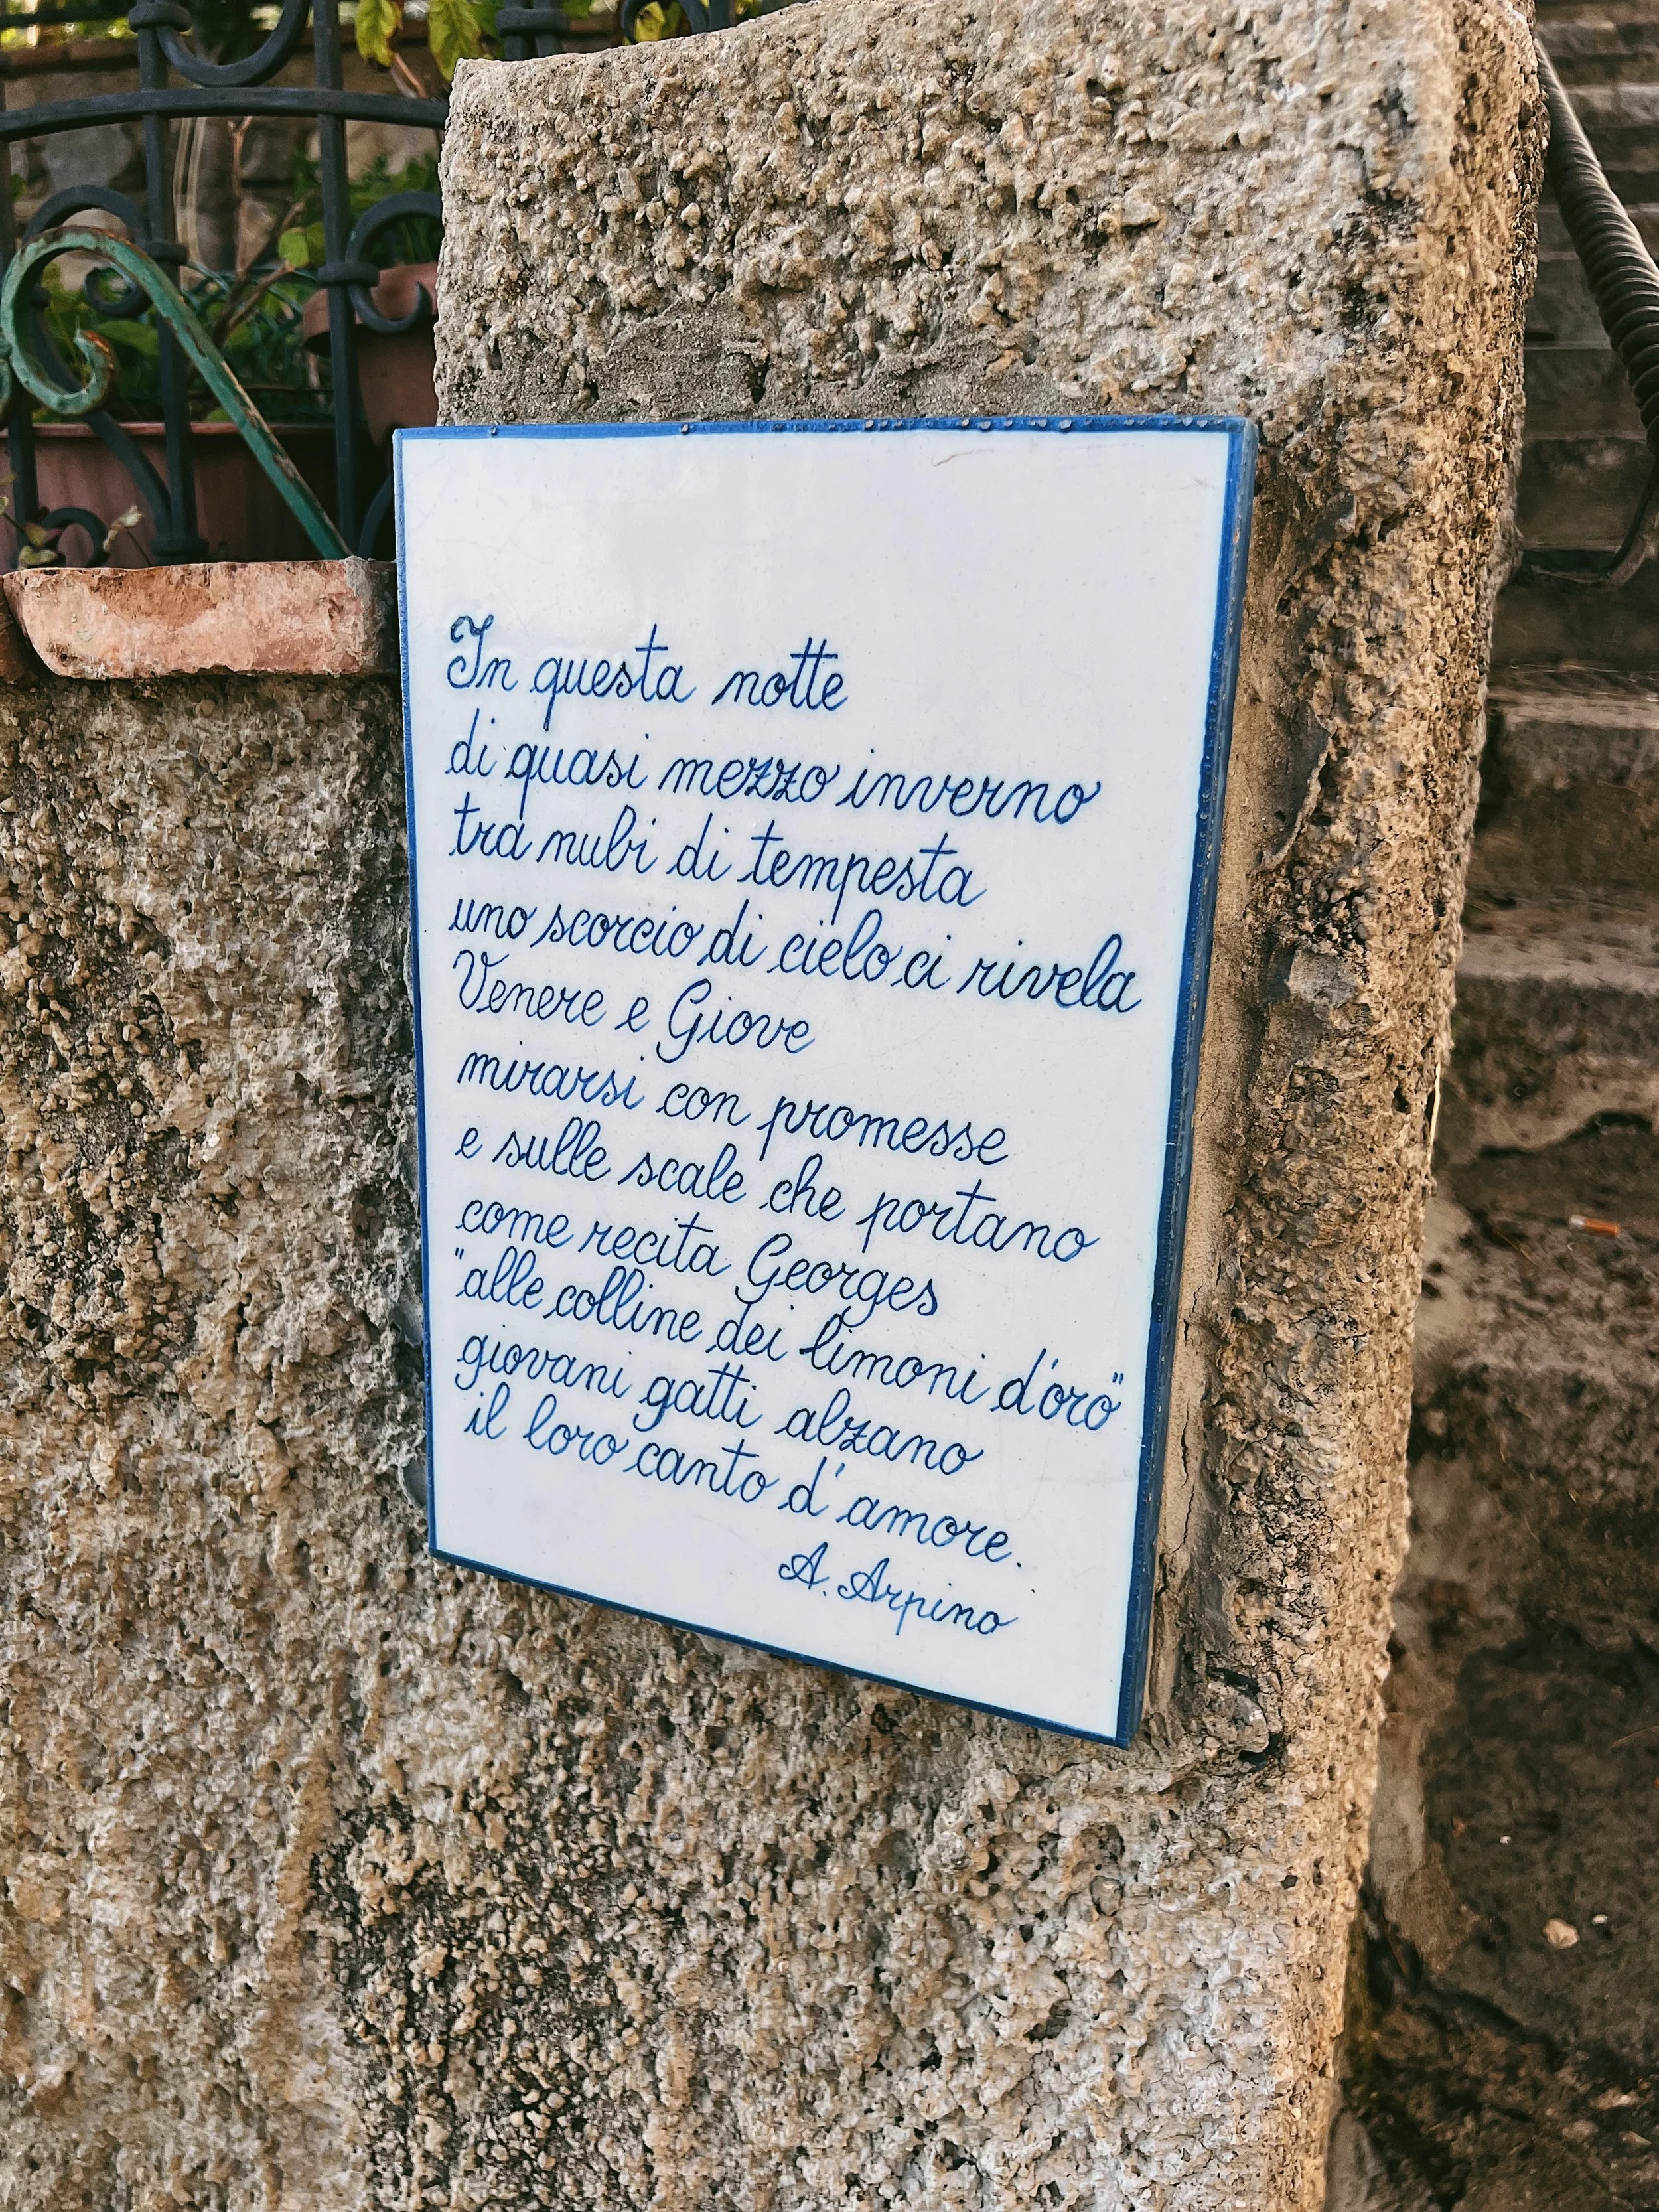 In questa notte
di quasi mezzo inverno
tra nubi di tempesta
uno scorcio di cielo ci rivela
Venere e Giove
mirarsi con promesse
e sulle scale che portano
come recita Georges
"alle colline dei limoni d'oro"
giovani gatti alzano
il loro canto d'amore.
A. Arpino